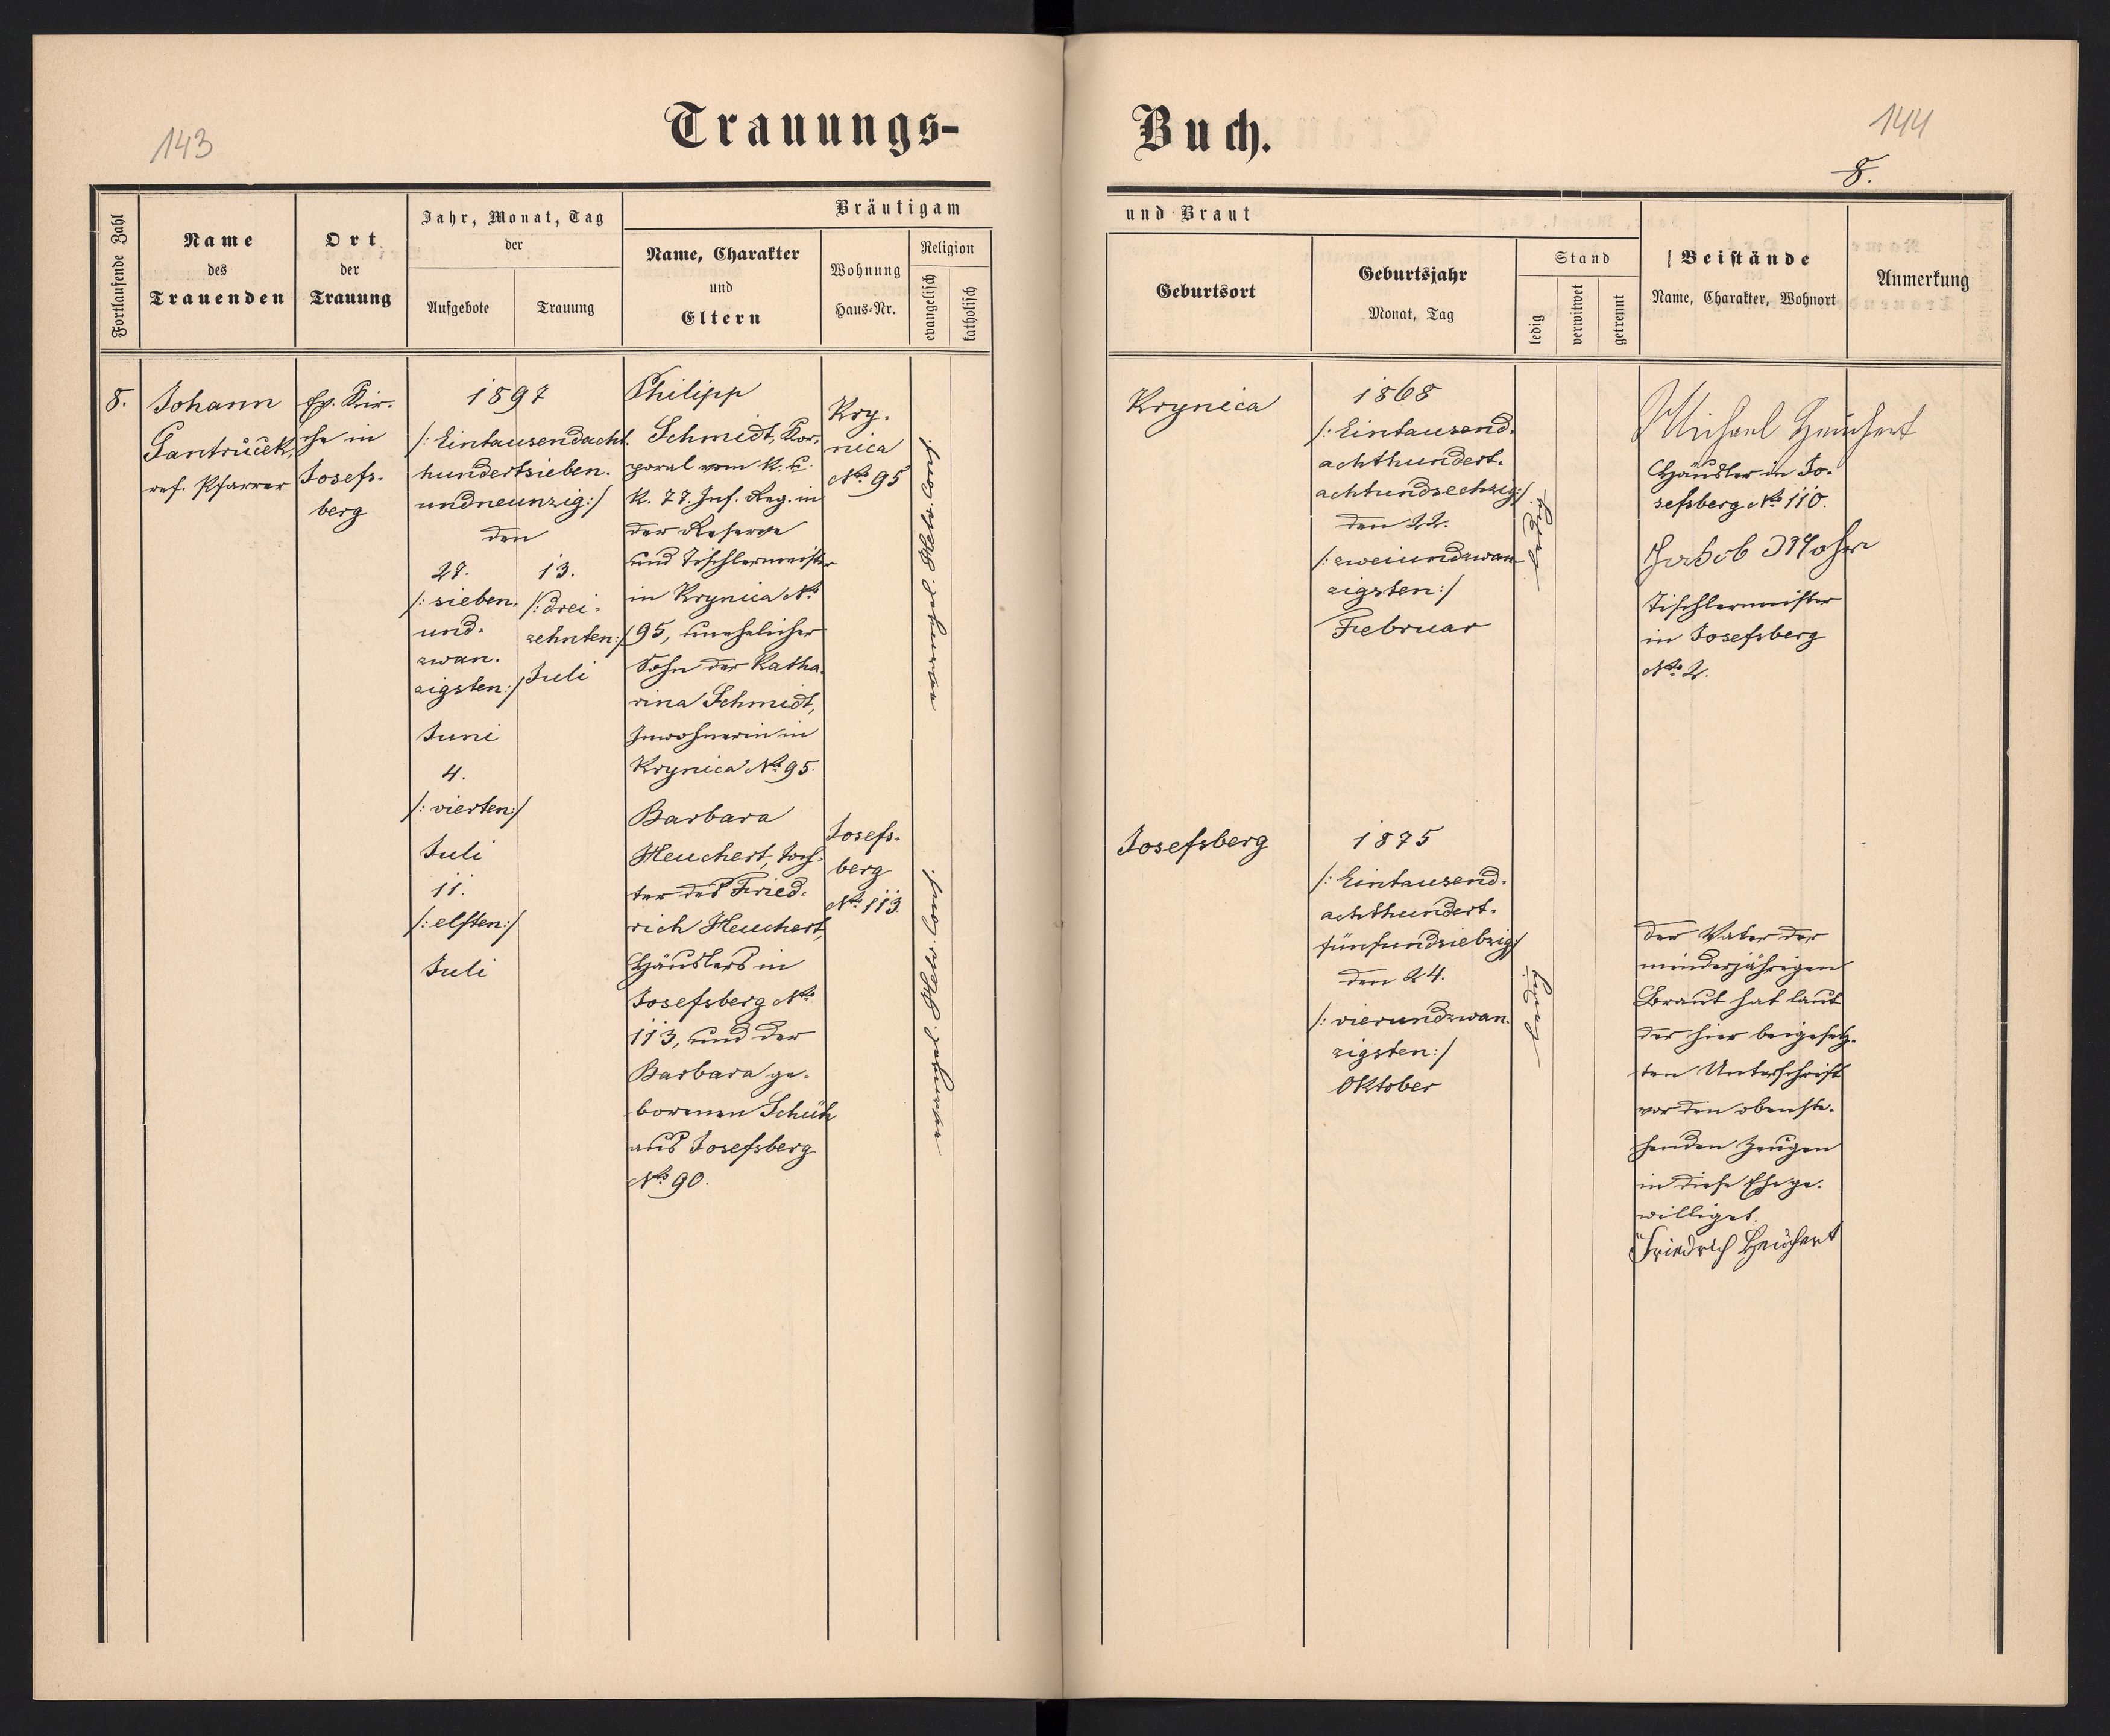 143
Trauungs-
Fortlaufende Zahl
Name
des
Trauenden
Ort
der
Trauung
Jahr, Monat, Tag
der
Aufgebote
Trauung
Bräutigam
Name, Charakter
und
Eltern
Wohnung
Haus-Nr.
Religion
evangelisch
katholisch
8.
Johann
Jantrůček,
ref. Pfarrer
Ev. Kir-
che in
Josefs-
berg
1897
/: Eintausendacht-
hundertsieben-
undneunzig :/
den
27.
/: sieben-
und-
zwan-
zigsten :/
Juni
4.
/: vierten :/
Juli
11.
/: elften :/
Juli
13.
/: drei-
zehnten :/
Juli
Philipp
Schmidt, Kor-
poral vom k. u.
k. 77. Inf. Reg. in
der Reserve
und Tischlermeister
in Krynica No
95, unehelicher
Sohn der Katha-
rina Schmidt,
Inwohnerin in
Krynica No 95.
Kry-
nica
No 95
evangel. Helv. Conf.
Barbara
Heuchert, Toch-
ter des Fried-
rich Heuchert,
Häuslers in
Josefsberg No
113, und der
Barbara ge-
borenen Schüh
aus Josefsberg
No 90.
Josefs-
berg
No 113.
evangel. Helv. Conf.
Buch.
144
8.
und Braut
Geburtsort
Geburtsjahr
Monat, Tag
Stand
ledig
verwitwet
getrennt
Beistände
Name, Charakter, Wohnort
Anmerkung
Krynica
1868
/: Eintausend-
achthundert-
achtundsechzig :/
den 22.
/: zweiundzwan-
zigsten :/
Februar
ledig
Michael Heuchert
Häusler in Jo-
sefsberg No 110.
Jakob Mohr
Tischlermeister
in Josefsberg
No 2.
Josefsberg
1875
/: Eintausend-
achthundert-
fünfundsiebzig :/
den 24.
/: vierundzwan-
zigsten :/
Oktober
ledig
Der Vater der
minderjährigen
Braut hat laut
der hier beigesetz-
ten Unterschrift
vor den obenste-
henden Zeugen
in diese Ehe ge-
williget.
Friedrich Heuchert